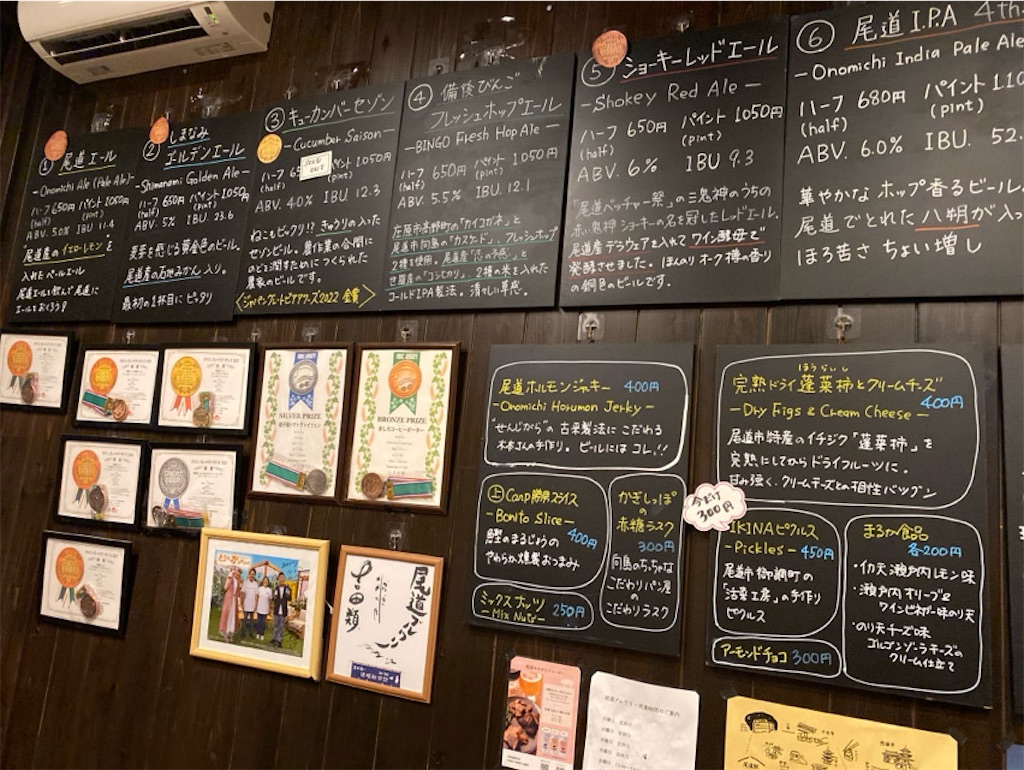 ① 尾道エール
- Onomichi Ale (Pale Ale) -
ハーフ 650円 パイント 1050円
(half) (pint)
ABV. 5.0% IBU. 11.4
尾道産のイエローレモンを
入れたペールエール
尾道エールを飲んで尾道に
エールをおくろう!
② しまなみ
ゴールデンエール
- Shimanami Golden Ale -
ハーフ 650円 パイント 1050円
(half) (pint)
ABV. 5% IBU. 23.6
麦芽を感じる黄金色のビール。
尾道産の石地みかん入り。
最初の1杯目にピッタリ
③ キューカンバーセゾン
- Cucumber Saison -
SOLD
OUT
パイント 1050円
(half) (pint)
ABV. 4.0% IBU. 12.3
ねこもビックリ!? きゅうりの入った
セゾンビール。農作業の合間に
のどを潤すためにつくられた
農家のビールです。
<ジャパングレートビアアワーズ2022 金賞>
④ 備後びんご
フレッシュホップエール
- BINGO Fresh Hop Ale -
ハーフ 650円 パイント 1050円
(half) (pint)
ABV. 5.5% IBU. 12.1
庄原市高野町の「カイコガネ」と
尾道市向島の「カスケード」、フレッシュホップ
2種を使用。尾道産「恋の予感」と
世羅産の「コシヒカリ」、2種の米を入れた
コールドIPA製法。清々しい草感。
⑤ ショーキーレッドエール
- Shokey Red Ale -
ハーフ 650円 パイント 1050円
(half) (pint)
ABV. 6% IBU 9.3
「尾道ベッチャー祭」の三鬼神のうちの
赤い鬼神ショーキーの名を冠したレッドエール。
尾道産デラウェアを入れてワイン酵母で
発酵させました。ほんのりオーク樽の香り
の銅色のビールです。
⑥ 尾道 I.P.A 4th
- Onomichi India Pale Ale
ハーフ 680円 パイント 110
(half) (pint)
ABV. 6.0% IBU. 52.
華やかなホップ香るビール。
尾道でとれた八朔が入っ
ほろ苦さ ちょい増し
SILVER PRIZE
BRONZE PRIZE
尾道ホルモンジャーキー 400円
- Onomichi Horumon Jerky -
"せんじがら"の古来製法にこだわる
木本さんの手作り。ビールにはコレ!!
㊤ Carp勝男スライス
- Bonito Slice -
400円
鰹のまるじょうの
やわらか燻製おつまみ
かぎしっぽ
の
赤糖ラスク
300円
向島のちっちゃな
こだわりパン屋の
こだわりラスク
ミックスナッツ
- Mix Nuts - 250円
ほうらいし
完熟ドライ蓬莱柿とクリームチーズ
- Dry Figs & Cream Cheese - 400円
尾道市特産のイチジク「蓬莱柿」を
完熟にしてからドライフルーツに。
甘み強く、クリームチーズとの相性バツグン
今だけ
300円
IKINAピクルス
- Pickles - 450円
尾道市御調町の
「活菜工房」の手作り
ピクルス
まるか食品
各200円
・イカ天瀬戸内レモン味
・瀬戸内オリーブ&
ワインビネガー味のり天
・のり天チーズ味
ゴルゴンゾーラチーズの
クリーム仕立て
アーモンドチョコ 300円
尾道ブルワリー
吉田類